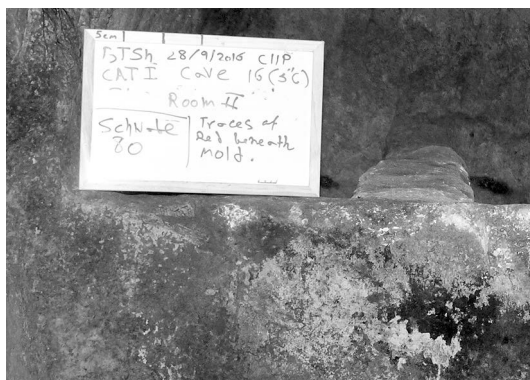 5cm
BTSh 28/9/2016 C11P
CAT I Cave 16 (3°C)
Room II
Schwabe
80
Traces of
Red beneath
Mold.